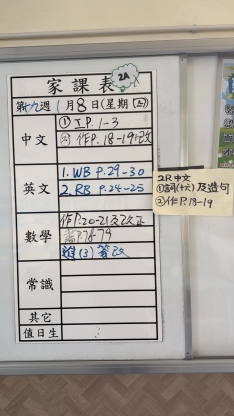 家課表
2A
第十九週 1月8日(星期四)
中文
① 工P.1-3
② 作P.18-19改
英文
1. WB P.29-30
2. RB P.24-25
數學
作P.20-21及改正
書P.78-79
進(3) 簽改
常識
其它
值日生
2R 中文
①詞(十六)及造句
②作P.18-19